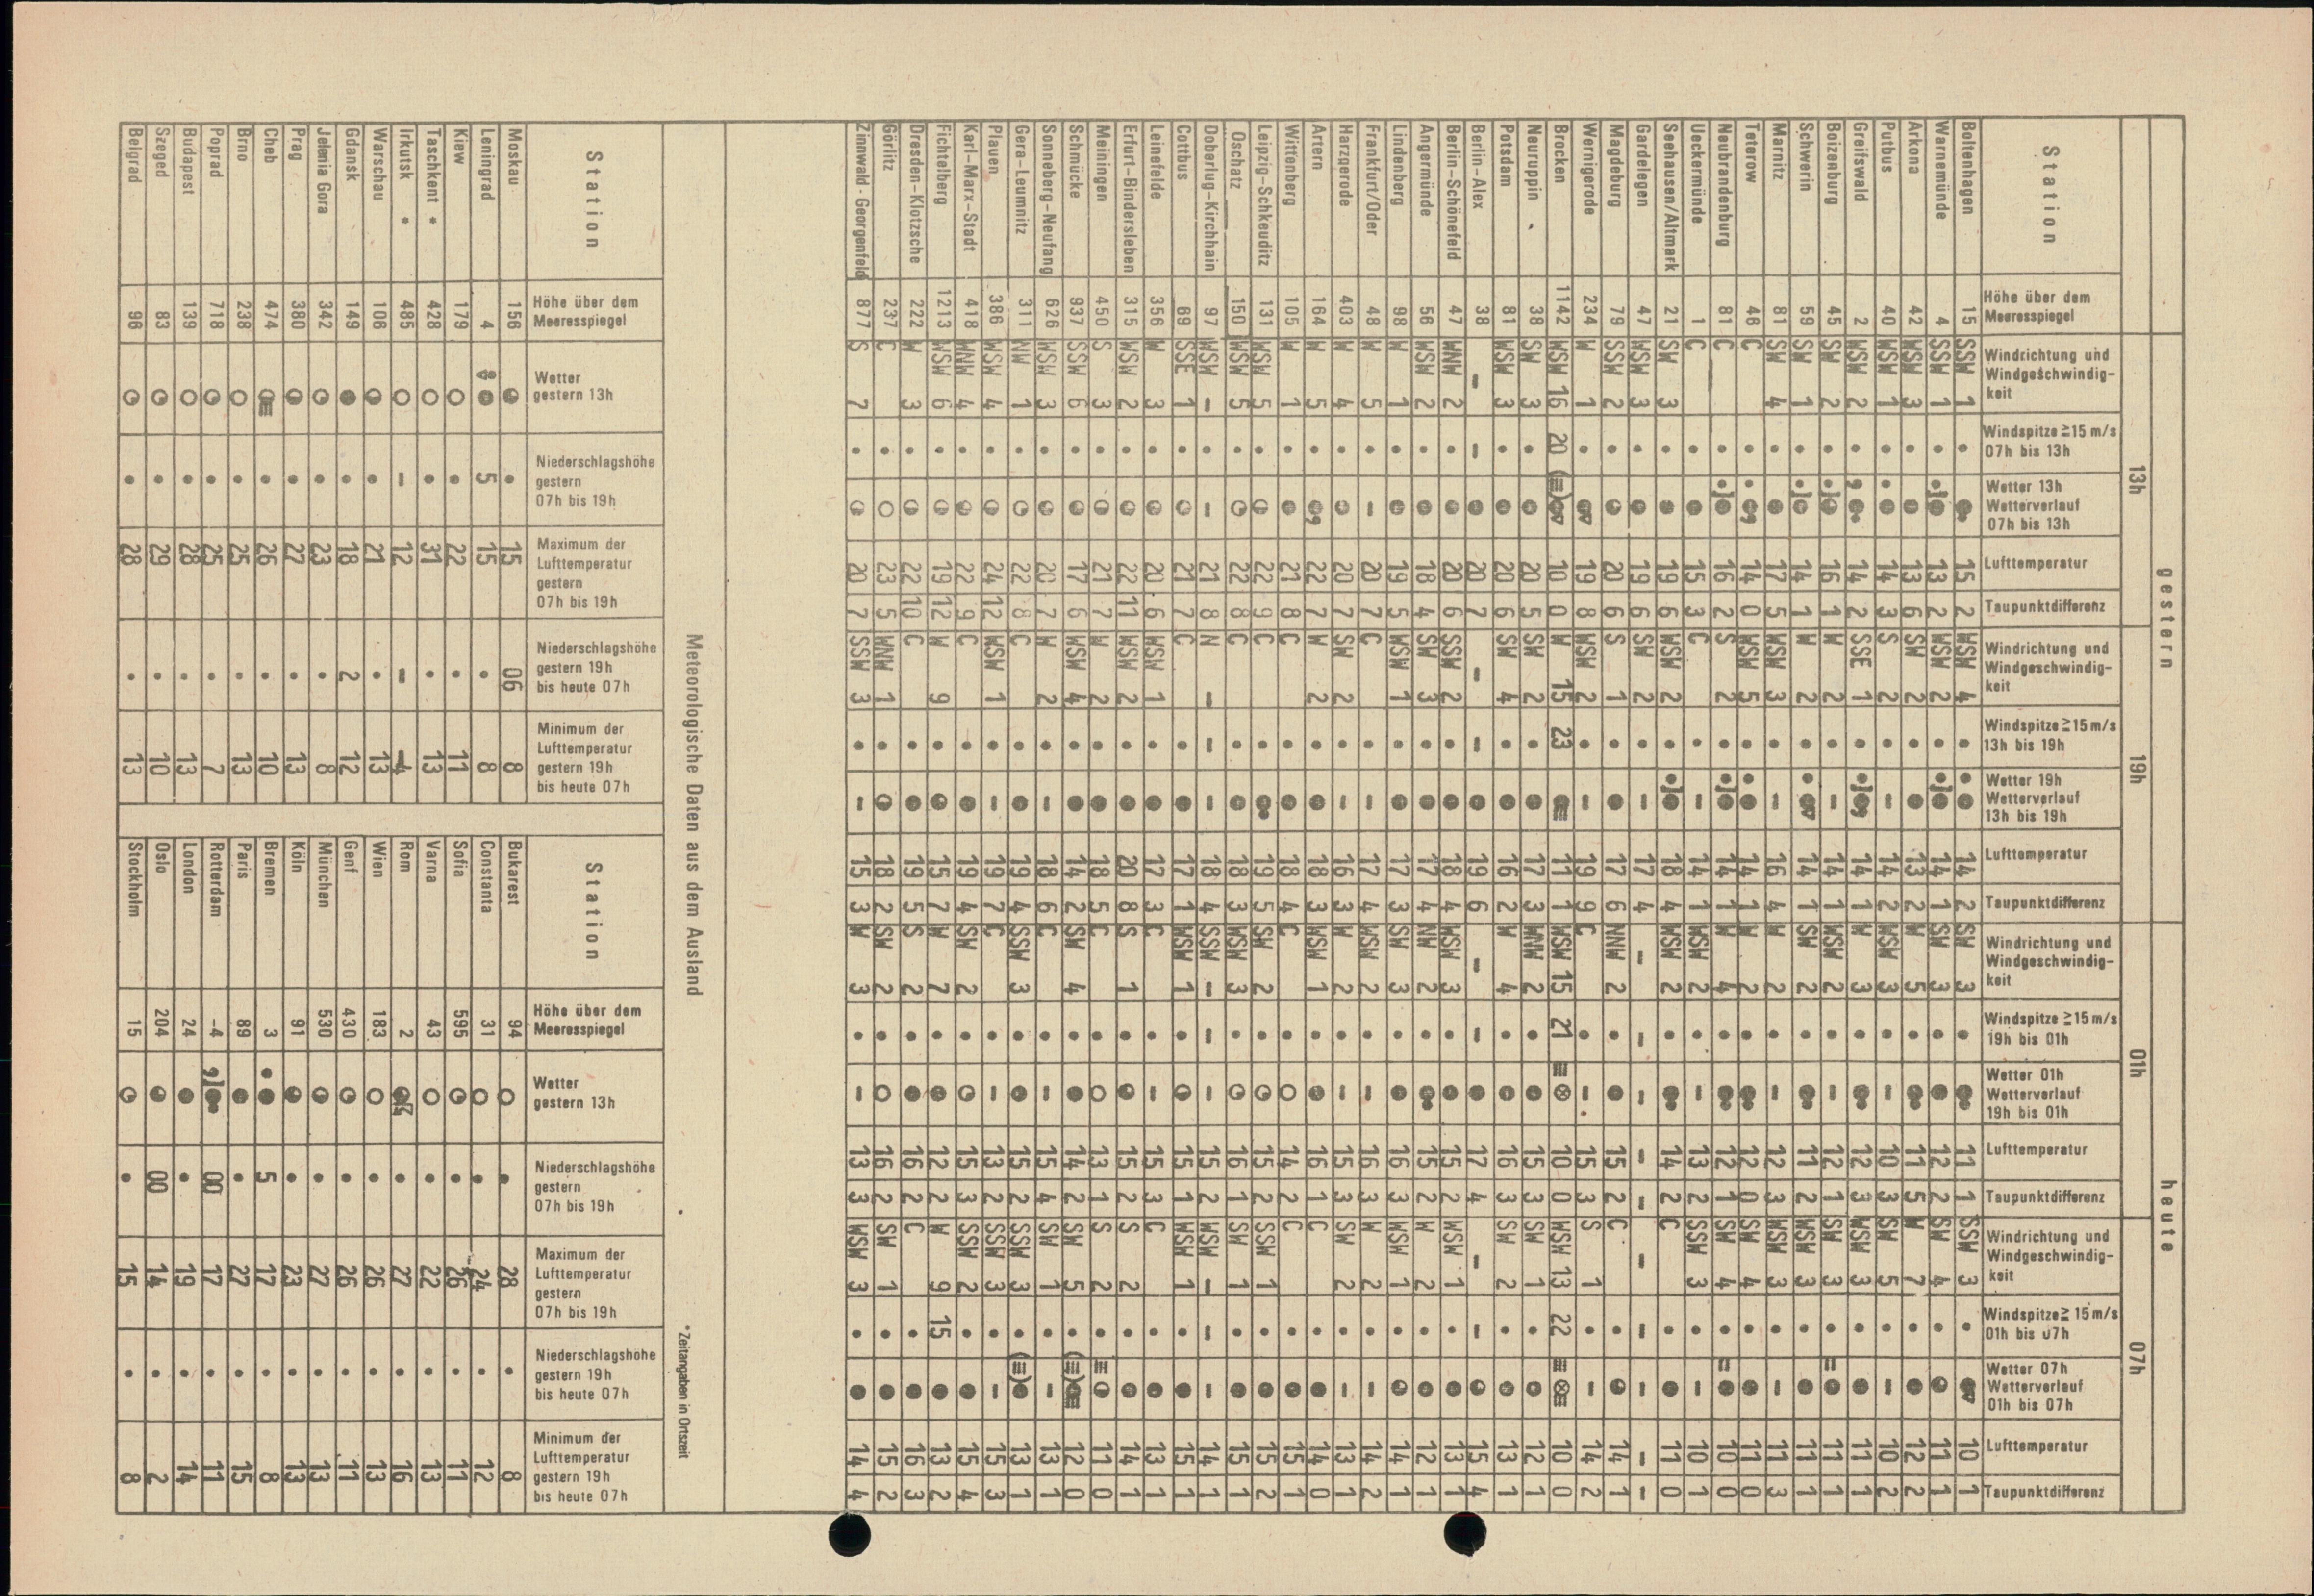 gestern heute
13h 19h 01h 07h
Station
Höhe über dem
Meeresspiegel
Windrichtung und
Windgeschwindig-
keit
Windspitze ≧15 m/s
07h bis 13h
Wetter 13h
Wetterverlauf
07h bis 13h
Lufttemperatur
Taupunktdifferenz
Windrichtung und
Windgeschwindig-
keit
Windspitze ≧15 m/s
13h bis 19h
Wetter 19h
Wetterverlauf
13h bis 19h
Lufttemperatur
Taupunktdifferenz
Windrichtung und
Windgeschwindig-
keit
Windspitze ≧15 m/s
19h bis 01h
Wetter 01h
Wetterverlauf
19h bis 01h
Lufttemperatur
Taupunktdifferenz
Windrichtung und
Windgeschwindig-
keit
Windspitze ≧ 15 m/s
01h bis 07h
Wetter 07h
Wetterverlauf
01h bis 07h
Lufttemperatur
Taupunktdifferenz
Boltenhagen 15 SSW 1 • 15 2 WSW 4 • 14 2 SW 3 • 11 1 SSW 3 • 10 1
Warnemünde 4 SSW 1 • 13 2 WSW 2 • 14 1 SW 3 • 12 2 SW 4 • 11 1
Arkona 42 WSW 3 • 13 6 SW 2 • 13 2 W 5 • 11 5 W 7 • 12 2
Putbus 40 WSW 1 • 14 3 S 2 • 14 2 WSW 3 • 10 3 SW 5 • 10 2
Greifswald 2 WSW 2 • 14 2 SSE 1 • 14 1 W 3 • 12 3 WSW 3 • 11 1
Boizenburg 45 SW 2 • 16 1 W 2 • 14 1 WSW 2 • 12 1 SW 3 • 11 1
Schwerin 59 SW 1 • 14 1 W 2 • 14 1 SW 2 • 11 2 WSW 3 • 11 1
Marnitz 81 SW 4 • 17 5 WSW 3 • 16 4 W 2 • 12 3 WSW 3 • 11 3
Teterow 46 C • 14 0 WSW 5 • 14 1 W 2 • 12 0 SW 4 • 11 0
Neubrandenburg 81 C • 16 2 S 2 • 14 1 W 4 • 12 1 SW 4 • 10 0
Ueckermünde 1 C • 15 3 C • 14 1 WSW 2 • 13 2 SSW 3 • 10 1
Seehausen/Altmark 21 SW 3 • 19 6 WSW 2 • 18 4 WSW 2 • 14 2 C • 11 0
Gardelegen 47 WSW 3 • 19 6 SW 2 • - 17 4 - - - - - - - - - -
Magdeburg 79 SSW 2 • 20 6 S 1 • 17 6 NNW 2 • 15 2 C • 14 1
Wernigerode 234 W 1 • 19 8 WSW 2 • - 19 9 C • - 15 3 S 1 • - 14 2
Brocken 1142 WSW 16 20 10 0 W 15 23 11 1 WSW 15 21 10 0 WSW 13 22 10 0
Neuruppin 38 SW 3 • 20 5 W 2 • 17 3 WNW 2 • 15 3 SW 1 • 12 1
Potsdam 81 WSW 3 • 20 6 SW 4 • 16 2 W 4 • 16 3 SW 2 • 13 1
Berlin-Alex 38 - - 20 7 - - 19 6 - - 17 4 - - 15 4
Berlin-Schönefeld 47 WNW 2 • 20 6 SSW 2 • 18 4 WSW 3 • 15 2 WSW 1 • 13 1
Angermünde 56 WSW 2 • 18 4 SW 3 • 17 4 NW 2 • 15 2 W 2 • 12 1
Lindenberg 98 W 1 • 19 5 WSW 1 • 17 3 SW 3 • 16 3 WSW 1 • 14 1
Frankfurt/Oder 48 W 5 • - 20 7 C • - 17 4 WSW 2 • - 16 3 W 2 • - 14 2
Harzgerode 403 W 4 • 20 7 SW 2 • - 16 3 W 2 • - 15 3 SW 2 • - 13 1
Artern 164 W 5 • 22 7 W 2 • 18 3 WSW 1 • 16 1 C • 14 0
Wittenberg 105 W 1 • 21 8 C • 18 4 C • 14 2 C • 15 1
Leipzig-Schkeuditz 131 WSW 5 • 22 9 C • 19 5 SW 2 • 15 2 SSW 1 • 15 2
Oschatz 150 WSW 5 • 22 8 C • 18 3 WSW 3 • 16 1 SW 1 • 15 1
Doberlug-Kirchhain 97 WSW - • - 21 8 N - - - 18 4 SSW - - - 15 2 WSW - - - 14 1
Cottbus 69 SSE 1 • 21 7 C • 17 1 WSW 1 • 15 1 WSW 1 • 15 1
Leinefelde 356 W 3 • 20 6 WSW 1 • 17 3 C • - 15 3 C • 13 1
Erfurt-Bindersleben 315 WSW 2 • 22 11 WSW 2 • 20 8 S 1 • 15 2 S 2 • 14 1
Meiningen 450 S 3 • 21 7 W 2 • 18 5 C • 13 1 S 2 • 11 0
Schmücke 937 SSW 6 • 17 6 WSW 4 • 14 2 SW 4 • 14 2 SW 5 • 12 0
Sonneberg-Neufang 626 WSW 3 • 20 7 W 2 • - 18 6 C • - 15 4 SW 1 • - 13 1
Gera-Leumnitz 311 NW 1 • 22 8 C • 19 4 SSW 3 • 15 2 SSW 3 • 13 1
Plauen 386 WSW 4 • 24 12 WSW 1 • - 19 7 C • - 13 2 SSW 3 • - 15 3
Karl-Marx-Stadt 418 WNW 4 • 22 9 C • 19 4 SW 2 • 15 3 SSW 2 • 15 4
Fichtelberg 1213 WSW 6 • 19 12 W 9 • 15 7 W 7 • 12 2 W 9 15 13 2
Dresden-Klotzsche 222 W 3 • 22 10 C • 19 5 S 2 • 16 2 C • 16 3
Görlitz 237 C • 23 5 WNW 1 • 18 2 SW 2 • 16 2 SW 1 • 15 2
Zinnwald-Georgenfeld 877 S 7 • 20 7 SSW 3 • - 15 3 W 3 • - 13 3 WSW 3 • 14 4
Meteorologische Daten aus dem Ausland
*Zeitangaben in Ortszeit
Station
Höhe über dem
Meeresspiegel
Wetter
gestern 13h
Niederschlagshöhe
gestern
07h bis 19h
Maximum der
Lufttemperatur
gestern
07h bis 19h
Niederschlagshöhe
gestern 19h
bis heute 07h
Minimum der
Lufttemperatur
gestern 19h
bis heute 07h
Moskau 156 • 15 06 8
Leningrad 4 5 15 • 8
Kiew 179 • 22 • 11
Taschkent * 428 • 31 • 13
Irkutsk * 485 - 12 - -4
Warschau 106 • 21 • 13
Gdansk 149 • 18 2 12
Jelenia Gora 342 • 23 • 8
Prag 380 • 27 • 13
Cheb 474 • 26 • 10
Brno 238 • 25 • 13
Poprad 718 • 25 • 7
Budapest 139 • 28 • 13
Szeged 83 • 29 • 10
Belgrad 96 • 28 • 13
Station
Höhe über dem
Meeresspiegel
Wetter
gestern 13h
Niederschlagshöhe
gestern
07h bis 19h
Maximum der
Lufttemperatur
gestern
07h bis 19h
Niederschlagshöhe
gestern 19h
bis heute 07h
Minimum der
Lufttemperatur
gestern 19h
bis heute 07h
Bukarest 94 • 28 • 8
Constanta 31 • 24 • 12
Sofia 595 • 26 • 11
Varna 43 • 22 • 13
Rom 2 • 27 • 16
Wien 183 • 26 • 13
Genf 430 • 26 • 11
München 530 • 27 • 13
Köln 91 • 23 • 13
Bremen 3 5 17 • 8
Paris 89 • 27 • 15
Rotterdam -4 00 17 • 11
London 24 • 19 • 14
Oslo 204 00 14 • 2
Stockholm 15 • 15 • 8